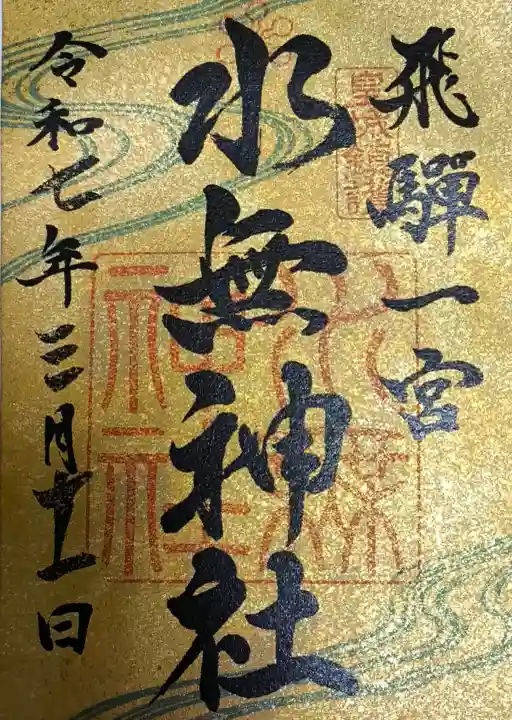 飛驒一宮
水無神社
令和七年三月十一日
水無神社